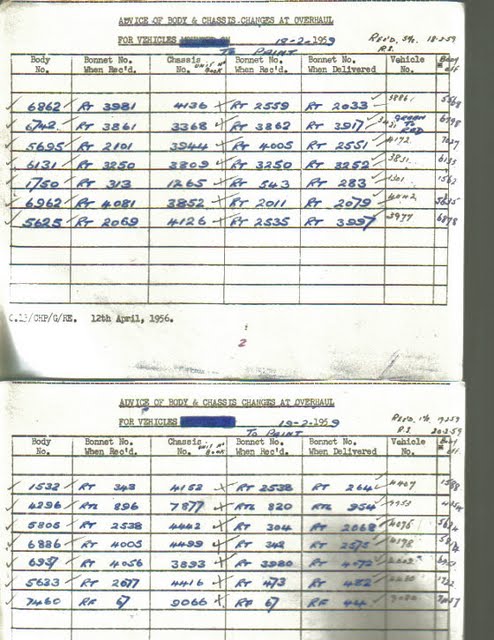 ADVICE OF BODY & CHASSIS CHANGES AT OVERHAUL
FOR VEHICLES 18-2-1959 REC'D. 18-2-59
TO PAINT R.S.
Body No. Bonnet No. When Rec'd. Chassis No. UNIT No BOOK Bonnet No. When Rec'd. Bonnet No. When Delivered Vehicle No. Body off
6862 RT 3981 4136 RT 2559 RT 2033
6742 RT 3861 3368 RT 3862 RT 3917 GREEN TO RED
5695 RT 2101 3944 RT 4005 RT 2551 4172 7037
6131 RT 3250 3809 RT 3250 RT 3252 6133
1750 RT 313 1265 RT 543 RT 283
6962 RT 4081 3852 RT 2011 RT 2079
5625 RT 2069 4126 RT 2535 RT 3997 3977 6878
C.13/CHP/G/RE. 12th April, 1956.
2
ADVICE OF BODY & CHASSIS CHANGES AT OVERHAUL
FOR VEHICLES 19-2-1959 REC'D. 19-2-59
TO PAINT R.S 20-2-59
Body No. Bonnet No. When Rec'd. Chassis No. UNIT No BOOK Bonnet No. When Rec'd. Bonnet No. When Delivered Vehicle No. Body off.
1532 RT 343 4152 RT 2538 RT 264 4407
4296 RTL 896 7877 RTL 820 RTL 954
5806 RT 2538 4442 RT 304 RT 2068 4076
6886 RT 4005 4499 RT 342 RT 2575 4178
6937 RT 4056 3893 RT 3980 RT 4072
5633 RT 2077 4416 RT 473 RT 482
7460 RF 67 9066 RF 67 RF 44